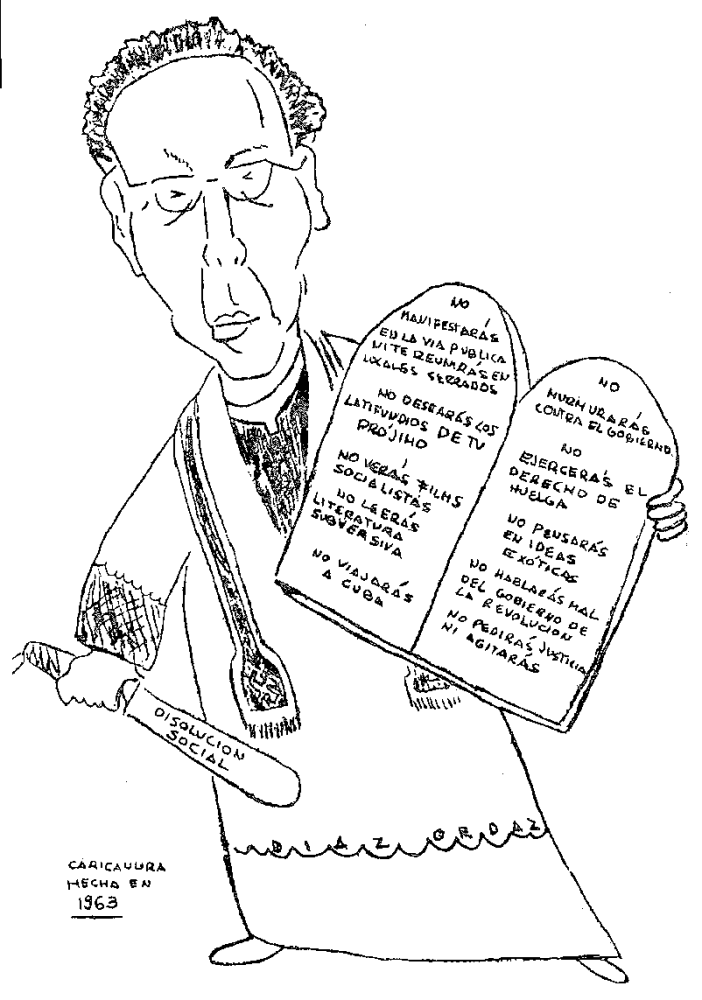 NO
MANIFESTARÁS
EN LA VIA PUBLICA
NI TE REUNIRÁS EN
LOCALES SERRADOS
NO DESEARÁS LOS
LATIFUNDIOS DE TU
PRÓJIMO
NO VERÁS FILMS
SOCIALISTAS
NO LEERÁS
LITERATURA
SUBVERSIVA
NO VIAJARÁS
A CUBA
NO
MURMURARÁS
CONTRA EL GOBIERNO
NO
EJERCERÁS EL
DERECHO DE
HUELGA
NO PENSARÁS
EN IDEAS
EXÓTICAS
NO HABLARÁS MAL
DEL GOBIERNO DE
LA REVOLUCION
NO PEDIRÁS JUSTICIA
NI AGITARÁS
DISOLUCION
SOCIAL
DIAZ ORDAZ
CARICAUURA
HECHA EN
1963